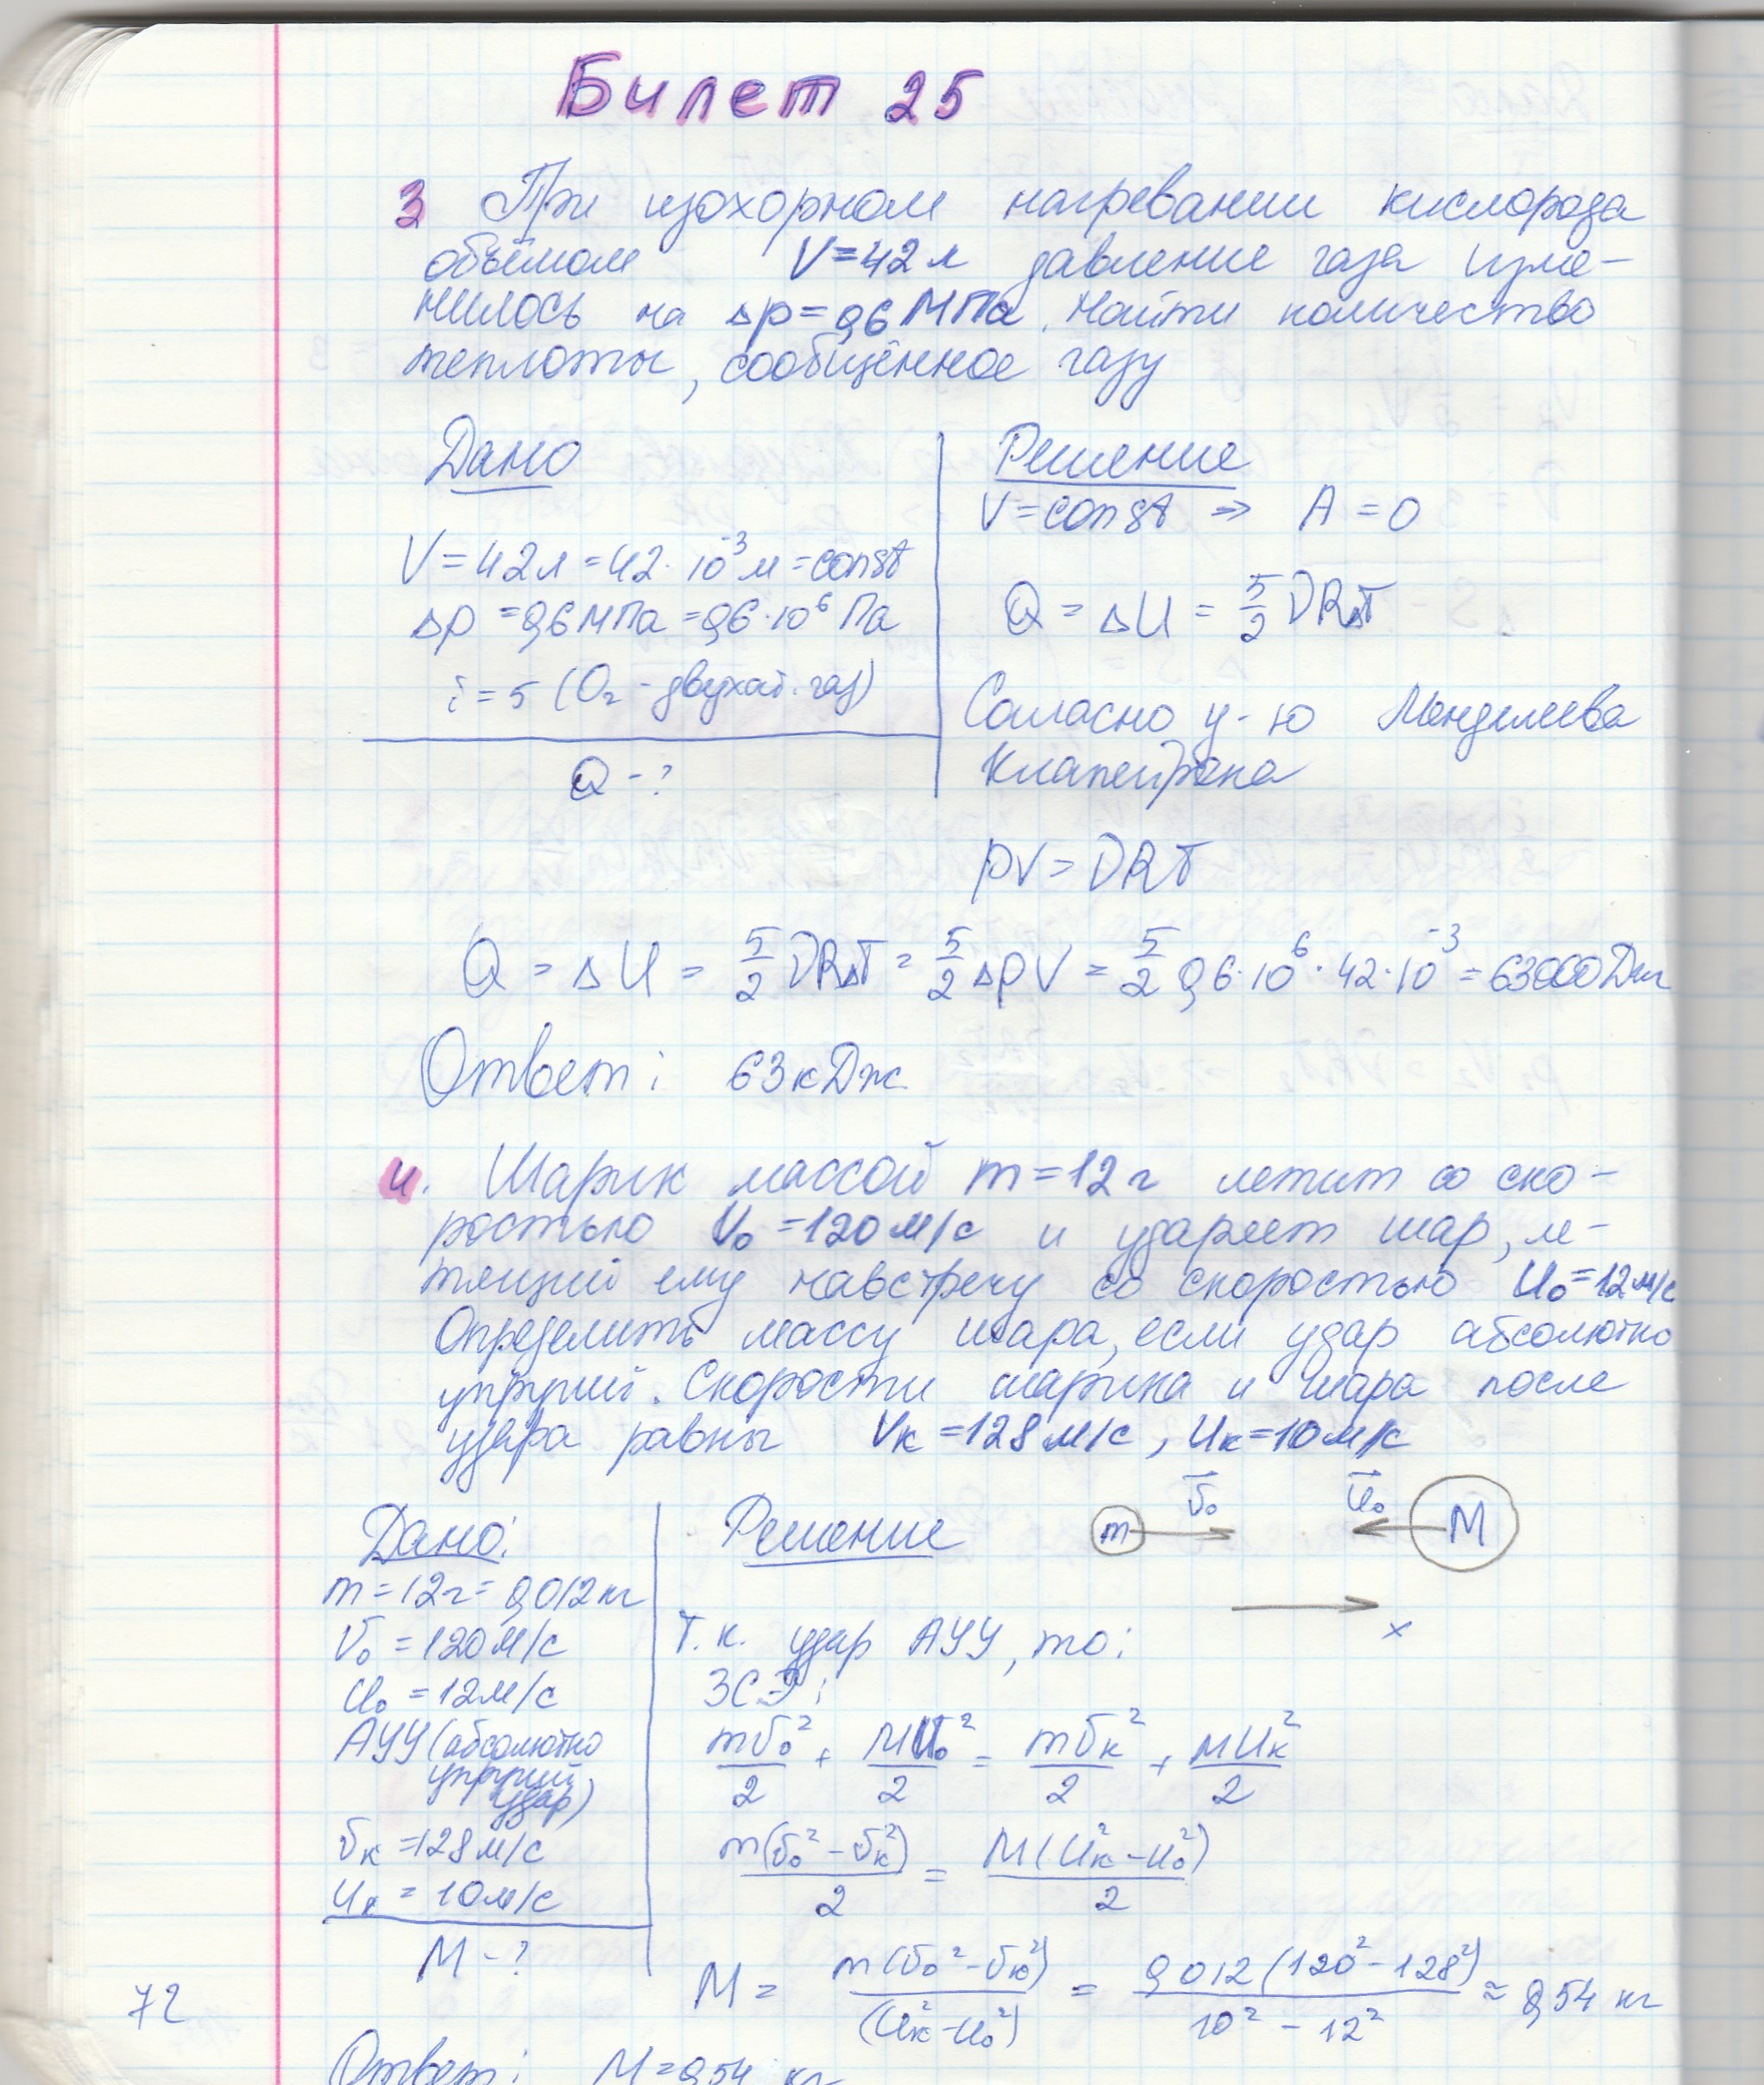 Билет 25
3 При изохорном нагревании кислорода
объёмом V=42л давление газа изме-
нилось на Δp=0,6 МПа. Найти количество
теплоты, сообщённое газу
Дано
V=42л=42·10⁻³м=const
Δp=0,6МПа=0,6·10⁶ Па
i=5 (O₂ - двухат. газ)
Q-?
Решение
V=const ⇒ A=0
Q = ΔU = 5/2 νRΔT
Согласно у-ю Менделеева
Клапейрона
pV = νRT
Q = ΔU = 5/2 νRΔT = 5/2 ΔpV = 5/2 0,6·10⁶·42·10⁻³ = 63000Дж
Ответ: 63кДж
4. Шарик массой m=12г летит со ско-
ростью V₀=120м/с и ударяет шар, ле-
тящий ему навстречу со скоростью U₀=12м/с
Определить массу шара, если удар абсолютно
упругий. Скорости шарика и шара после
удара равны Vк=128м/с, Uк=10м/с
Дано:
m=12г=0,012кг
V₀=120м/с
U₀=12м/с
АУУ(абсолютно
упругий
удар)
Vк=128м/с
Uк=10м/с
M-?
Решение
m V₀ U₀ M
x
Т.к. удар АУУ, то:
ЗСЭ:
mV₀²/2 + MU₀²/2 = mVк²/2 + MUк²/2
m(V₀²-Vк²)/2 = M(Uк²-U₀²)/2
M = m(V₀²-Vк²)/(Uк²-U₀²) = 0,012(120²-128²)/10²-12² ≈ 0,54 кг
72
Ответ: M=0,54 кг